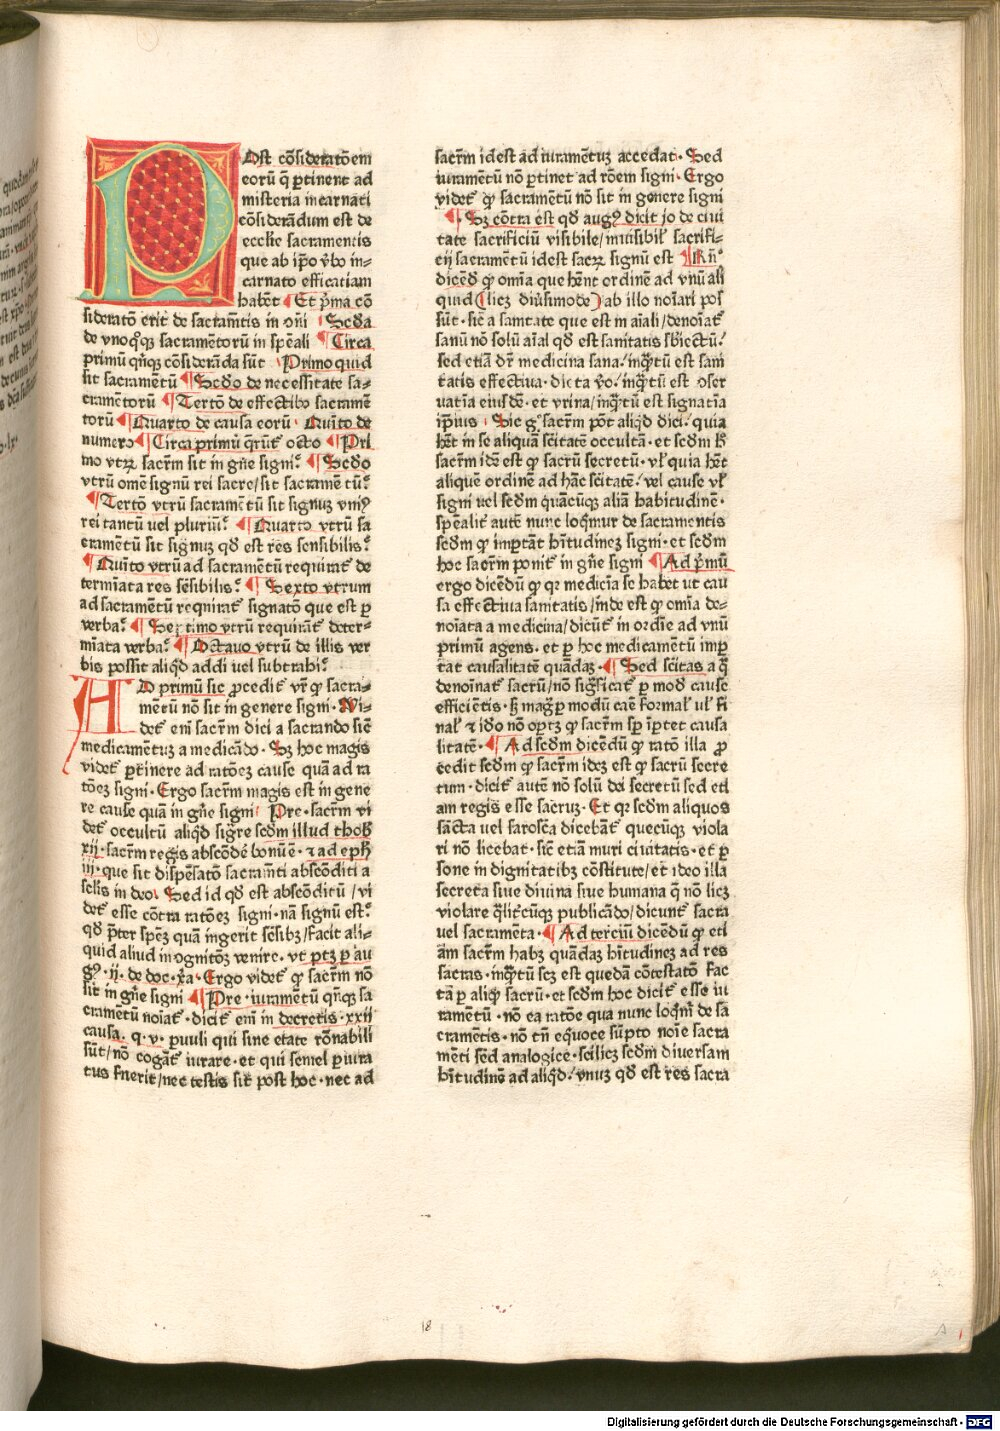 Post cōsideratōem
eorū q̄ ꝑtinent ad
misteria incarnati
cōsiderādum est de
ecclie sacramentis
que ab ip̄o v̄bo in-
carnato efficatiam
habēt ¶ Et p̄ma cō
sideratō erit de sacramētis in ōni ¶ Scd̄a
de vnoq̄qꝫ sacramētorū in sp̄eāli ¶ Circa
primū qn̄qꝫ cōsiderāda sūt ¶ Primo quid
sit sacramētū ¶ Scd̄o de necessitate sa-
cramētorū ¶ Tertō de effectibꝰ sacramē
torū ¶ Quarto de causa eorū ¶ Quīto de
numero ¶ Circa primū q̄rūt᷑ octo ¶ Pri
mo vtrꝫ sacrm̄ sit in gn̄e signi? ¶ Scd̄o
vtrū omē signū rei sacre/ sit sacramē tū?
¶ Tertō vtrū sacramētū sit signuꝫ vniꝰ
rei tantū uel pluriū? ¶ Quarto vtrū sa
cramētū sit signuꝫ qd̄ est res sensibilis?
¶ Quīto vtrū ad sacramētū requirat᷑ de
termīata res sēsibilis? ¶ Sexto vtrum
ad sacramētū requirat᷑ signatō que est ꝑ
verba? ¶ Septimo vtrū requirāt᷑ deter-
mīata verba? ¶ Octauo vtrū de illis ver
bis possit aliqd̄ addi uel subtrahi?
AD primū sic ꝓcedit᷑ vr̄ ꝙ sacra-
mētū nō sit in genere signi· Ui-
det᷑ eni sacrm̄ dici a sacrando sic̄
medicamētuꝫ a medicādo· Sꝫ hoc magis
videt᷑ ꝑtinere ad ratōeꝫ cause quā ad ra
tōeꝫ signi· Ergo sacrm̄ magis est in gene
re cause quā in gn̄e signi ¶ Pre· sacrm̄ vi
det᷑ occultū aliqd̄ sig̅re scd̄m illud thob̄
xij· sacrm̄ regis abscōdē bonū ē· ⁊ ad eph̄
iij· que sit dispēsatō sacramīti abscōditi a
sclis in deo· Sed id qd̄ est abscōditū / vi
det᷑ esse cōtra ratōeꝫ signi· nā signū est?
qd̄ p̄ter sp̄eꝫ quā ingerit sēsibꝫ/ facit ali-
quid aliud in ognitōeꝫ venire· vt ptꝫ ꝑ au
gꝰ· ij· de doc· xp̄a· Ergo videt᷑ ꝙ sacrm̄ nō
sit in gn̄e signi ¶ Pre· iuramētū qn̄qꝫ sa
cramētū noīat᷑· dicit᷑ eni in decretis· xxij
causa· q· v· puuli qui sine etate rōnabili
sūt/ nō cogāt᷑ iurare· et qui semel ꝑiura
tus fuerit/ nec testis sit post hoc· nec ad
sacrm̄ id est ad iuramētuꝫ accedat· Sed
iuramētū nō ꝑtinet ad rōem signi· Ergo
videt᷑ ꝙ sacramētū nō sit in genere signi
¶ Sꝫ cōtra est qd̄ augꝰ dicit jo de ciui
tate sacrificiū visibile/ inuisibil̄ sacrifi-
cij sacramētū id est sacꝝ signū est ¶ Rn̄o
dicēd̄ ꝙ om̄ia que hn̄t ordinē ad vnū ali
quid (licꝫ diu̓simode) ab illo noīari pos
sūt· sic̄ a sanitate que est in aīali/ denoīat᷑
sanū nō solū aīal qd̄ est sanitatis sbiectū:
sed etiā dr̄ medicina sana/ inq̄tū est sani
tatis effectiua· dieta v̄o/ inq̄tū est ↄser
uatīa eiusdē· et vrina/ inq̄tū est signatīa
ip̄ius· Sic gͦ sacrm̄ pōt aliqd̄ dici/ quia
hēt in se aliquā scītatē occultā· et scd̄m h̄
sacrm̄ idē est ꝙ sacrū secretū· vl̓ quia hēt
aliquē ordinē ad hāc scītatē/ vel cause vl̓
signi uel scd̄m quācūqꝫ aliā habitudinē·
sp̄ealit᷑ autē nunc loqmur de sacramentis
scd̄m ꝙ imꝑtāt hītudineꝫ signi· et scd̄m
hoc sacrm̄ ponit᷑ in gn̄e signi ¶ Ad p̄mū
ergo dicēdū ꝙ qꝛ medicīa se habet ut cau
sa effectiua sanitatis/ inde est ꝙ om̄ia de-
noīata a medicina/ dicūt᷑ in ordīe ad vnū
primū agens· et ꝑ hoc medicamētū imꝑ
tat causalitatē quādaꝫ· ¶ Sed scītas a q̄
denoīnat᷑ sacrū/ nō sig̅ficat᷑ ꝑ modū cause
efficiētis· sꝫ mag̅ ꝑ modū cāe formal̓ ul̓ fi
nal̓ ⁊ iō nō oportꝫ ꝙ sacrm̄ sꝑ īꝑtet causa
litatē· ¶ Ad scd̄m dicēdū ꝙ ratō illa ꝓ
cedit scd̄m ꝙ sacrm̄ ideꝫ est ꝙ sacrū secre
tum· dicit᷑ autē nō solū dei secretū sed eti
am regis esse sacruꝫ· Et qꝛ scd̄m aliquos
sācta uel sarosca dicebāt᷑ quecūqꝫ viola
ri nō licebat· sic̄ etiā muri ciuitatis· et ꝑ
sone in dignitatibꝫ cōstitute/ et ideo illa
secreta siue diuina siue humana q̄ nō licꝫ
violare q̄litcūqꝫ publicādo/ dicunt᷑ sacra
uel sacramēta· ¶ Ad terciū dicēdū ꝙ eti
am sacrm̄ habꝫ quādaꝫ hītudineꝫ ad res
sacras· inq̄tū scꝫ est quedā cōtestatō fac
ta ꝑ aliqd̄ sacrū· et scd̄m hoc dicit᷑ esse iu
ramētū· nō ea ratōe qua nunc loqm̄ de sa
cramētis· nō tn̄ equoce sūpto noīe sacra
mēti sed analogice· scilicꝫ scd̄m diuersam
hītudinē ad aliqd̄/ vnuꝫ qd̄ est res sacra
18
Digitalisierung gefördert durch die Deutsche Forschungsgemeinschaft - DFG